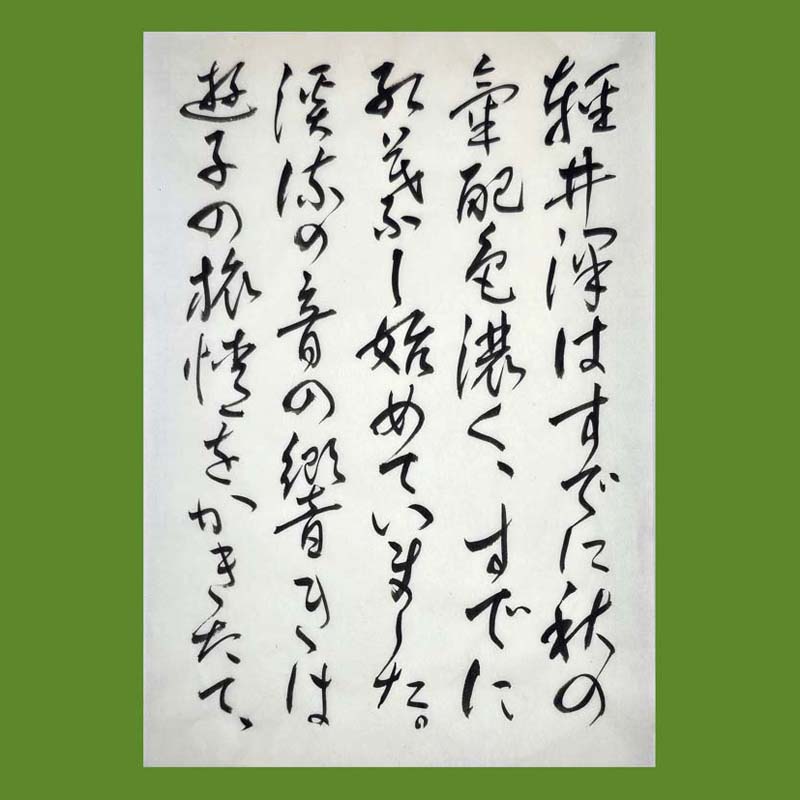 軽井澤はすでに秋の
氣配色濃く、すでに
紅葉し始めていました。
渓流の音の響きは
遊子の旅情をかきたて、